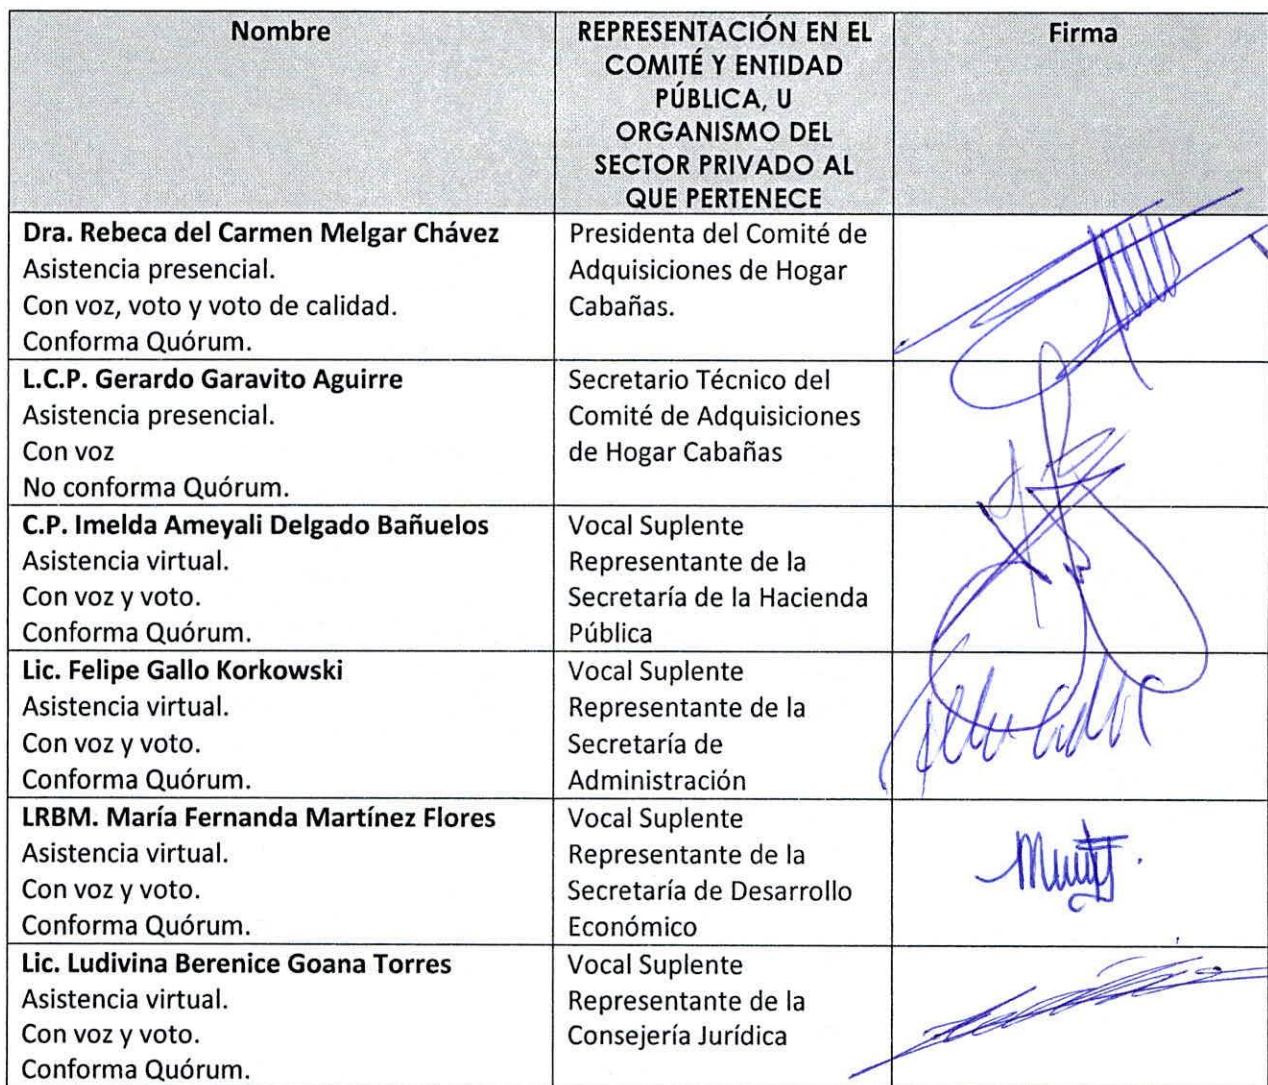 Nombre
REPRESENTACIÓN EN EL
COMITÉ Y ENTIDAD
PÚBLICA, U
ORGANISMO DEL
SECTOR PRIVADO AL
QUE PERTENECE
Firma
Dra. Rebeca del Carmen Melgar Chávez
Asistencia presencial.
Con voz, voto y voto de calidad.
Conforma Quórum.
Presidenta del Comité de
Adquisiciones de Hogar
Cabañas.
L.C.P. Gerardo Garavito Aguirre
Asistencia presencial.
Con voz
No conforma Quórum.
Secretario Técnico del
Comité de Adquisiciones
de Hogar Cabañas
C.P. Imelda Ameyali Delgado Bañuelos
Asistencia virtual.
Con voz y voto.
Conforma Quórum.
Vocal Suplente
Representante de la
Secretaría de la Hacienda
Pública
Lic. Felipe Gallo Korkowski
Asistencia virtual.
Con voz y voto.
Conforma Quórum.
Vocal Suplente
Representante de la
Secretaría de
Administración
LRBM. María Fernanda Martínez Flores
Asistencia virtual.
Con voz y voto.
Conforma Quórum.
Vocal Suplente
Representante de la
Secretaría de Desarrollo
Económico
Lic. Ludivina Berenice Goana Torres
Asistencia virtual.
Con voz y voto.
Conforma Quórum.
Vocal Suplente
Representante de la
Consejería Jurídica